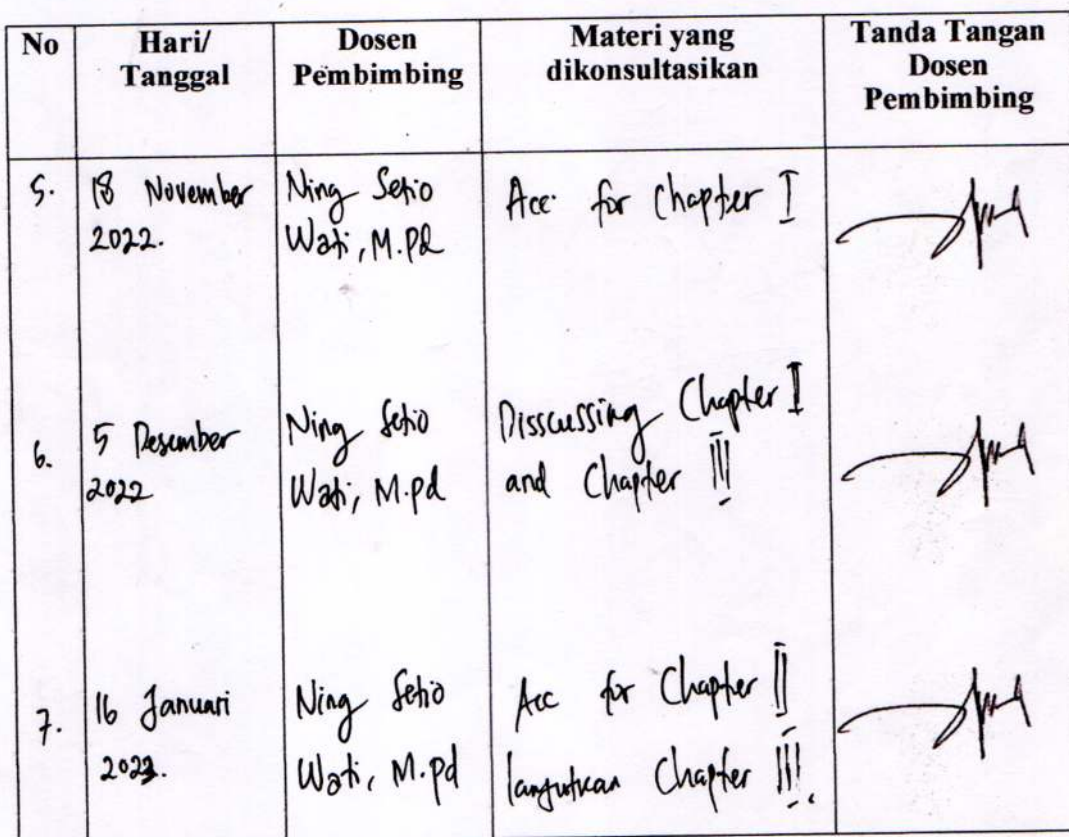 No
Hari/
Tanggal
Dosen
Pembimbing
Materi yang
dikonsultasikan
Tanda Tangan
Dosen
Pembimbing
5.
18 November
2022.
Ning Setio
Wati, M.Pd
Acc for Chapter I
6.
5 Desember
2022
Ning Setio
Wati, M.Pd
Disscussing Chapter I
and Chapter III
7.
16 Januari
2023.
Ning Setio
Wati, M.Pd
Acc for Chapter II
lanjutkan Chapter III.